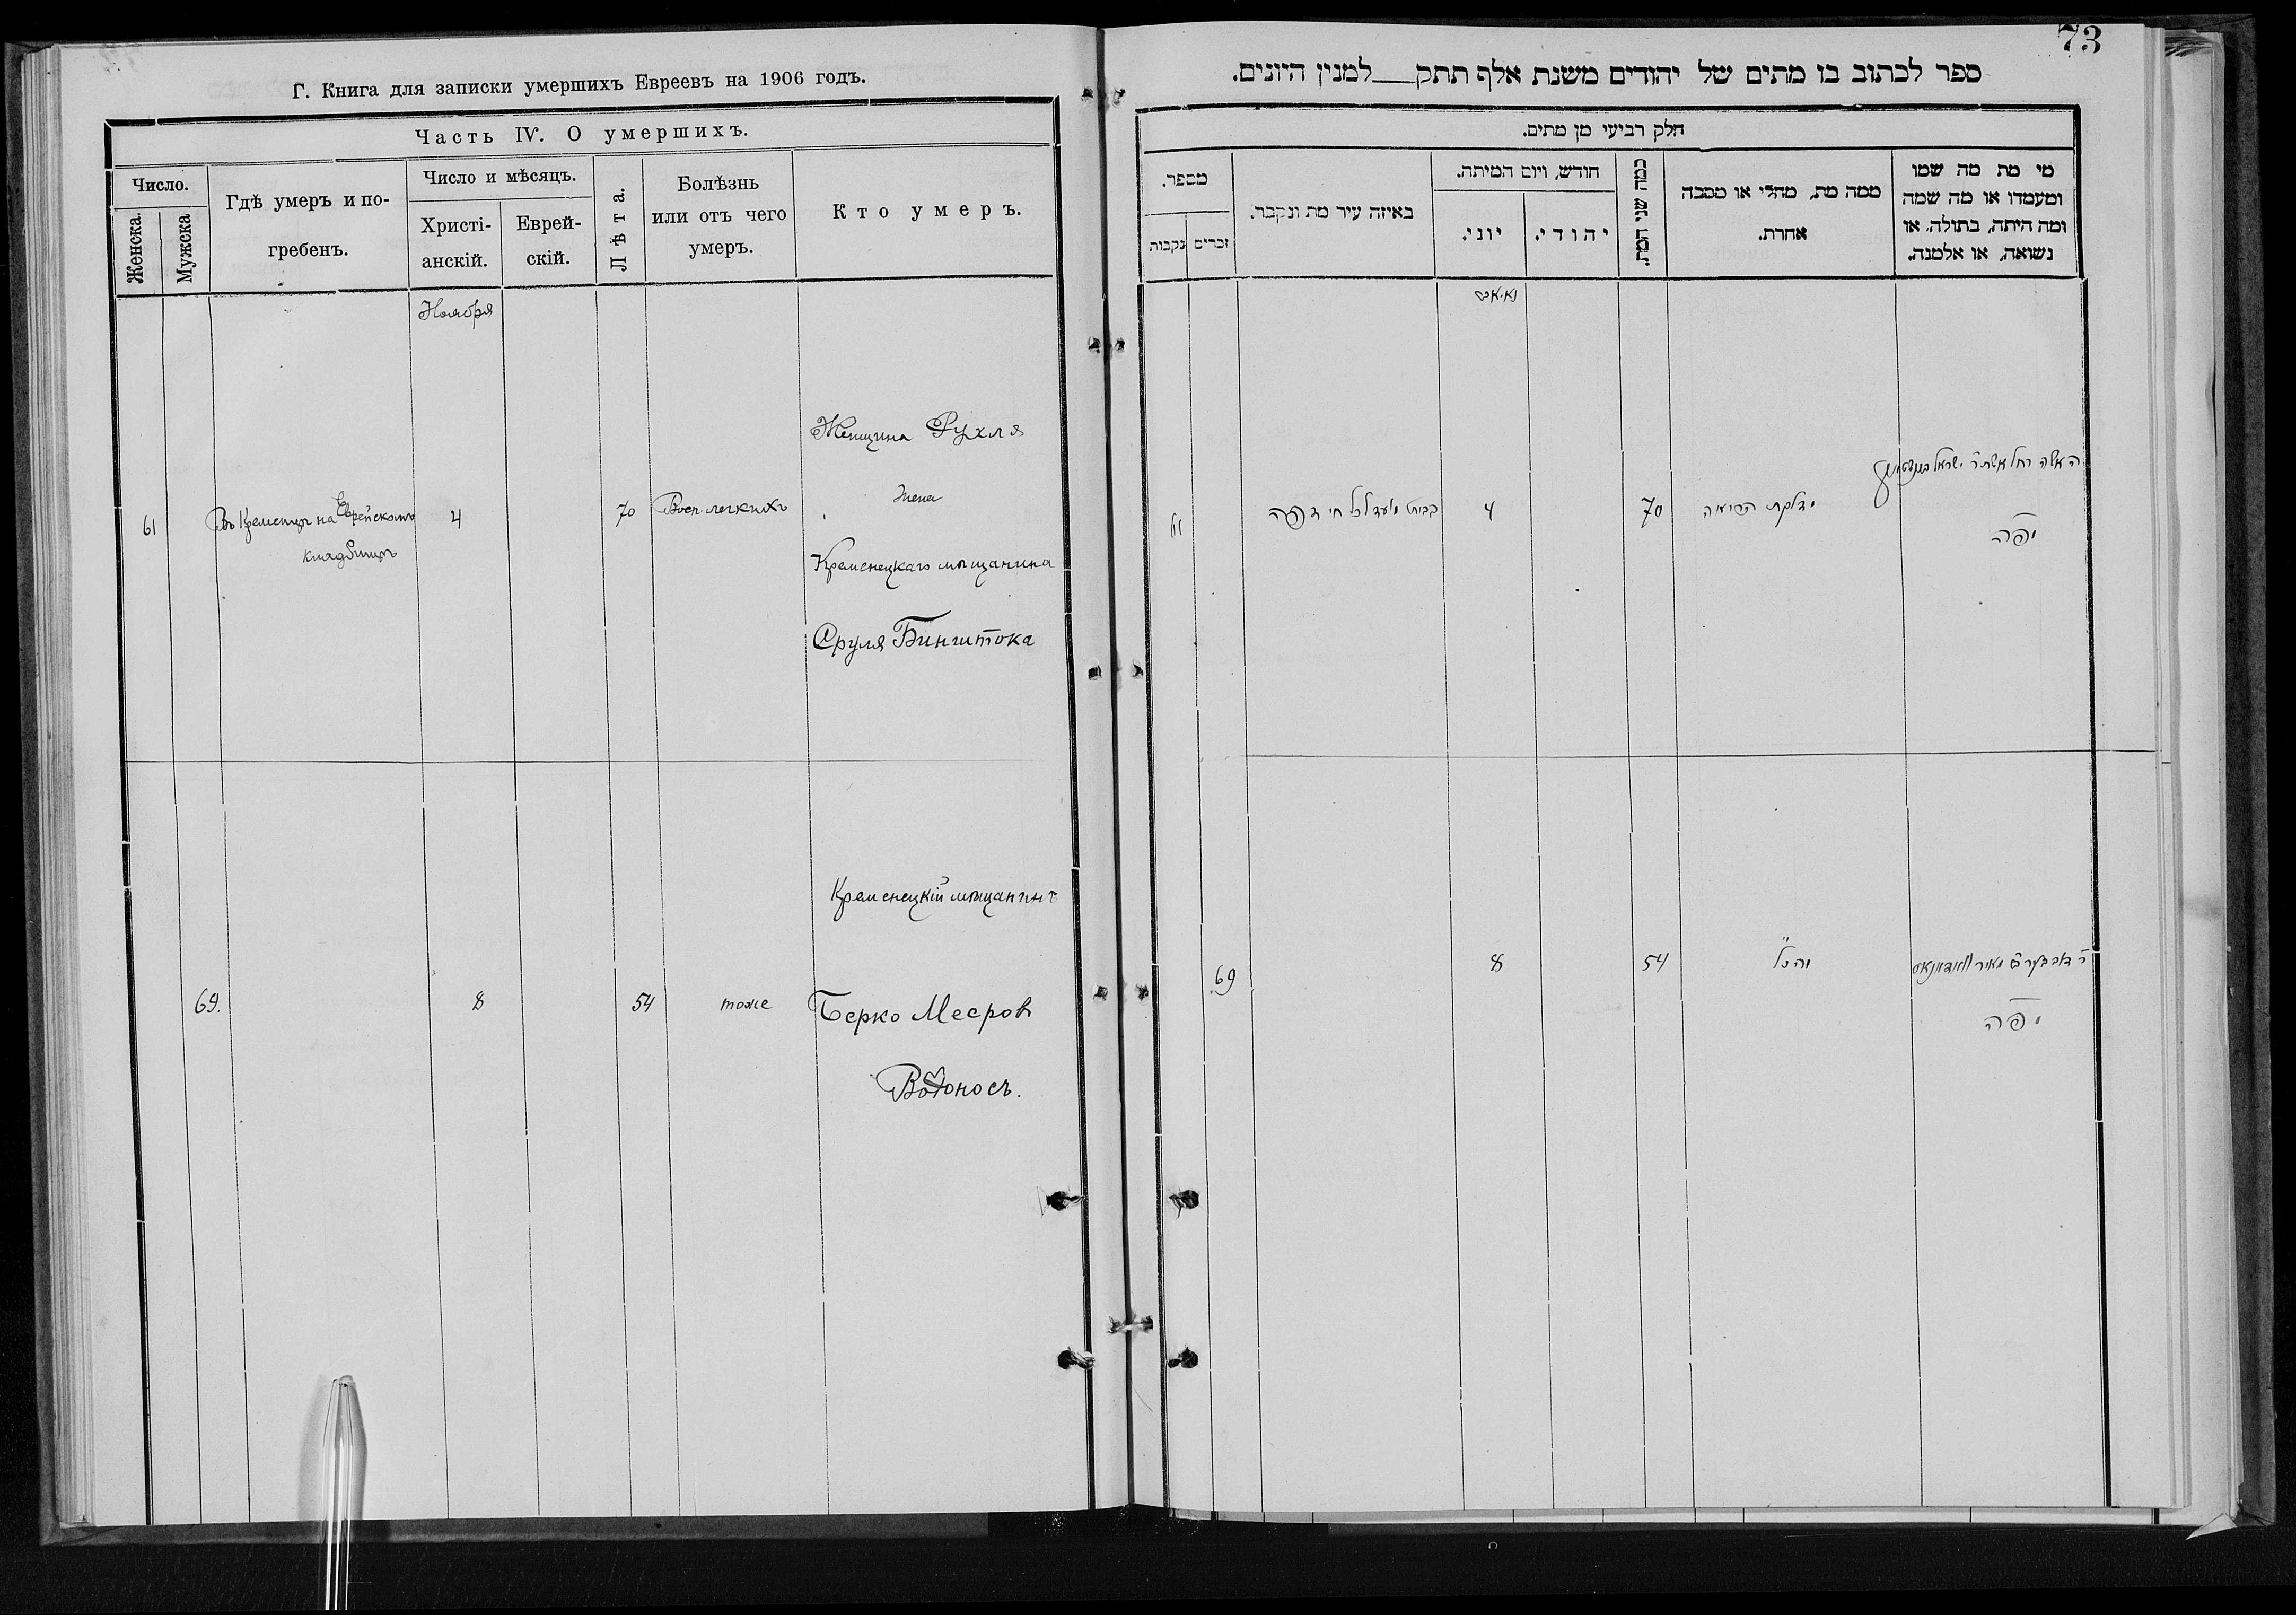 Г. Книга для записки умершихъ Евреевъ на 1906 годъ.
Часть IV. О умершихъ.
Число.
Женска.
Мужска
Гдѣ умеръ и по-
гребенъ.
Число и мѣсяцъ.
Христі-
анскій.
Еврей-
скій.
Лѣта.
Болѣзнь
или отъ чего
умеръ.
Кто умеръ.
Ноября
61
Въ Кременцѣ на Еврейскомъ
кладбищѣ
4
70
Восп. легкихъ
Женщина Рухля
жена
Кременецкаго мѣщанина
Сруля Бинштока
69.
8
54
тоже
Кременецкій мѣщанинъ
Берко Мееров
Водоносъ.
73
ספר לכתוב בו מתים של יהודים משנת אלף תתק למנין היונים.
חלק רביעי מן מתים.
מספר.
נקבות
זכרים
באיזה עיר מת ונקבר.
חודש, ויום המיתה.
יוני.
יהודי.
כמה שני המת.
ממה מת, מחלי או מסבה
אחרת.
מי מת מה שמו
ומעמדו או מה שמה
ומה היתה, בתולה, או
נשואה, או אלמנה.
61
4
70
האשה רחל אשת ר' ישראל
מפה
69
8
54
כנ"ל
מפה